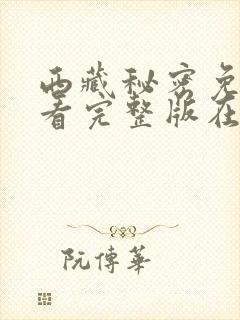 西藏秘密免
看完整版在
阮傳華